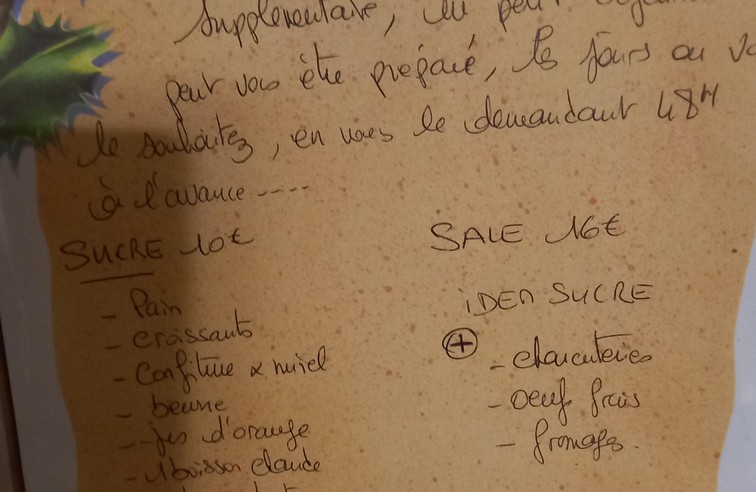 supplémentaire, un petit
peut vous être préparé, les jours ou vo
le souhaitez, en nous le demandant 48H
à l'avance ----
SUCRE 10€
- Pain
- croissants
- Confiture & miel
- beurre
- jus d'orange
- 1 boisson chaude
SALE 16€
iDEM SUCRE
+
- charcuteries
- oeuf frais
- fromages.